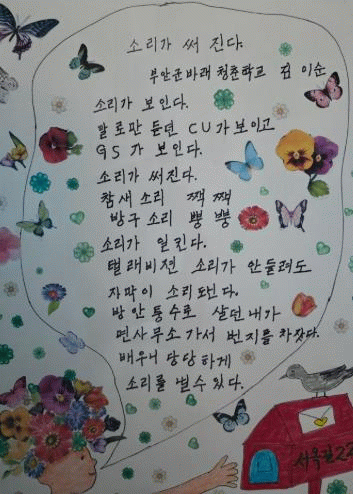 소리가 써 진다.
부안군바래청춘학교 김 이순
소리가 보인다.
말로만 듣던 CU가 보이고
GS 가 보인다.
소리가 써진다.
참새 소리 짹 짹
방구 소리 뿡 뿡
소리가 일킨다.
텔래비젼 소리가 안들려도
자막이 소리된다.
방안퉁수로 살던 내가
면사무소 가서 번지를 차잤다.
배우니 당당하게
소리를 낼수 있다.
서옥길